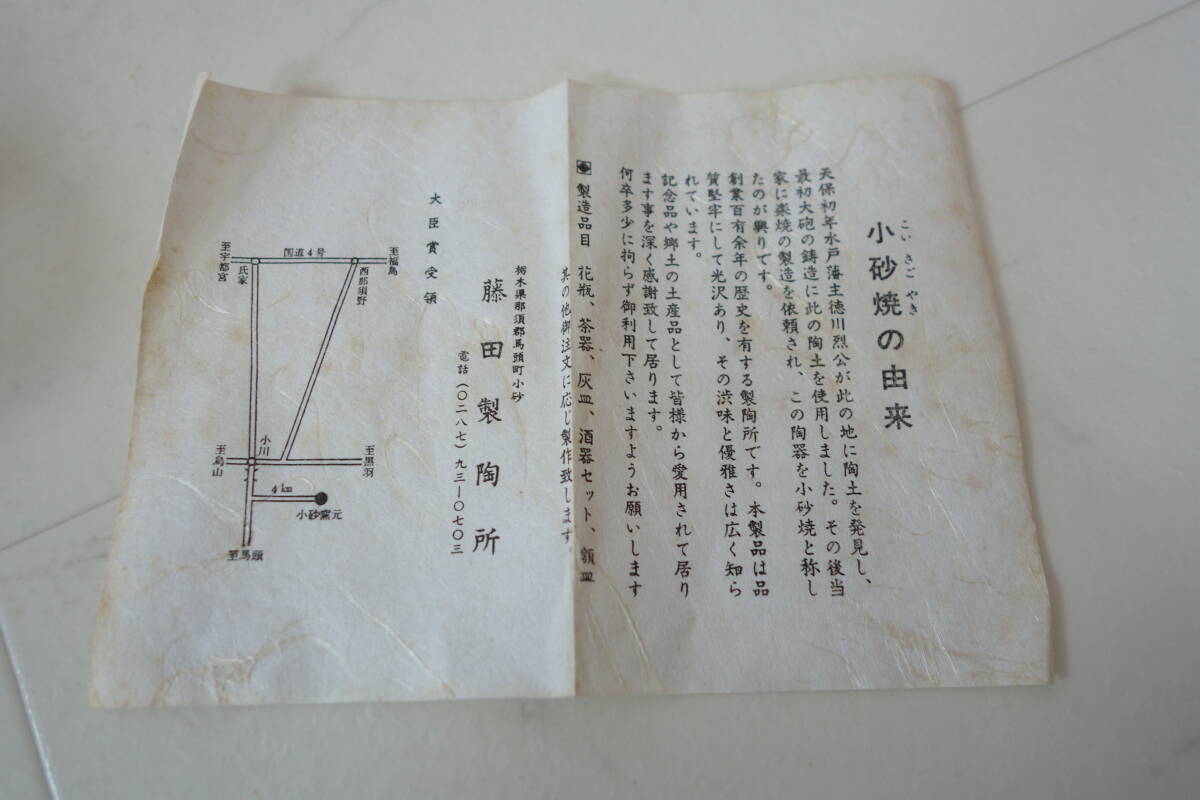 こいさごやき
小砂焼の由来
天保初年水戸藩主徳川烈公が此の地に陶土を発見し、
最初大砲の鋳造に此の陶土を使用しました。その後当
家に楽焼の製造を依頼され、この陶器を小砂焼と称し
たのが興りです。
創業百有余年の歴史を有する製陶所です。本製品は品
質堅牢にして光沢あり、その渋味と優雅さは広く知ら
れています。
記念品や郷土の土産品として皆様から愛用されて居り
ます事を深く感謝致して居ります。
何卒多少に拘らず御利用下さいますようお願いします
製造品目 花瓶、茶器、灰皿、酒器セット、額皿
其の他御注文に応じ製作致します。
栃木県那須郡馬頭町小砂
藤田製陶所
電話(〇二八七)九三―〇七〇三
大臣賞受領
至福島
西那須野
国道4号
氏家
至宇都宮
至黒羽
小川
至烏山
4km
小砂窯元
至馬頭